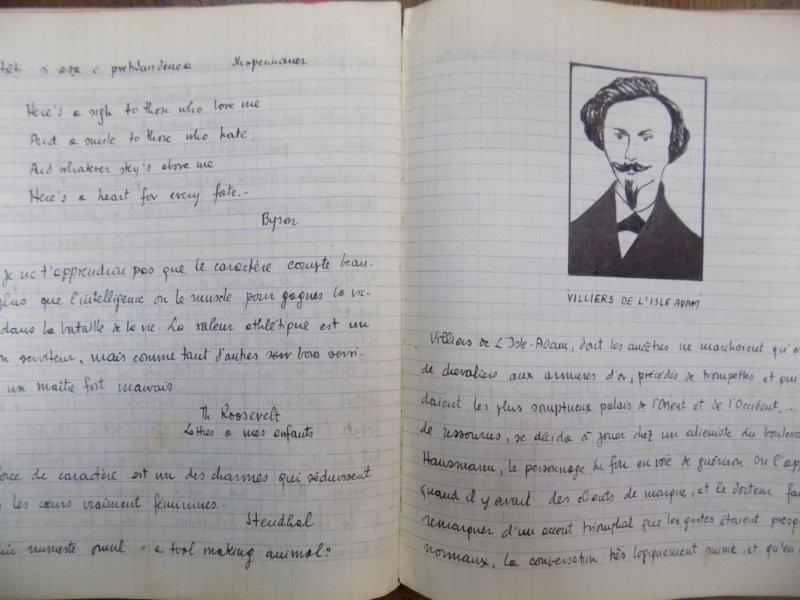 și așa e pretutindenea Shopenhauer
Here's a sigh to those who love me
And a smile to those who hate;
And whatever sky's above me
Here's a heart for every fate.-
Byron
Je ne t'apprendrai pas que le caractère compte beau-
plus que l'intelligence ou le muscle pour gagner la vic-
dans la bataille de la vie. La valeur athlétique est un
serviteur, mais comme tant d'autres bons servi-
un maître fort mauvais.
Th. Roosevelt
Lettres a mes enfants
de caractère est un des charmes qui séduissent
les cœurs vraiment feminines.-
Stendhal
numește omul "a tool making animal"
VILLIERS DE L'ISLE ADAM
Villiers de L'Isle-Adam, dont les ancêtres ne marchaient qu'
de chevaliers aux armures d'or, précédés de trompettes et qui
daient les plus somptueux palais de l'Orient et de l'Occident,...
de ressources, se décida à jouer chez un alieniste du boulevard
Hausmann, le personnage du fou en voie de guérison. On l'app
quand il y avait des clients de marque, et le docteur fai
remarquer d'un accent triomphal que les gestes étaient presq
normaux, la conversation très logiquement suivie, et qu'en